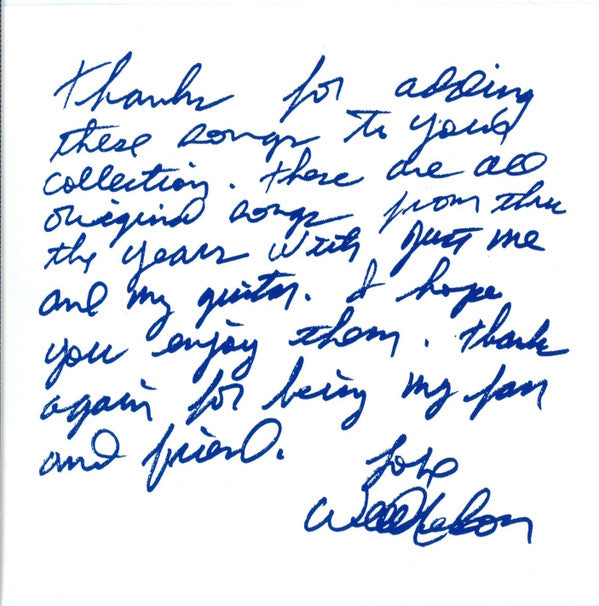 Thanks for adding
these songs to your
collection. These are all
original songs from thru
the years with just me
and my guitar. I hope
you enjoy them. Thanks
again for being my fan
and friend.
Love
Willie Nelson